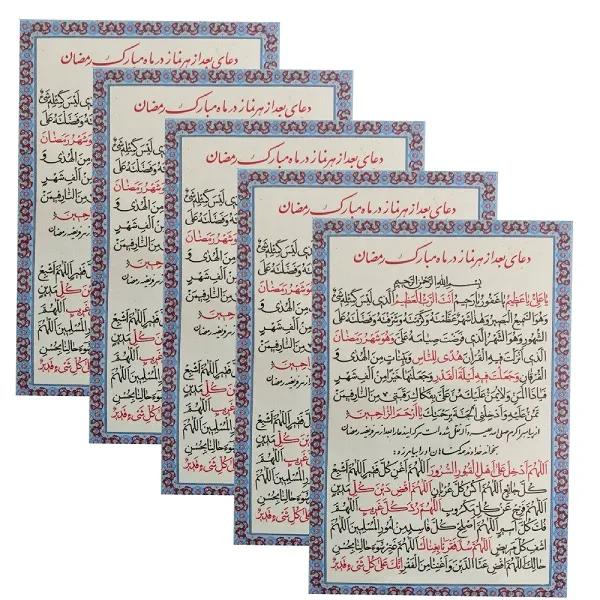 دعای بعد از هر نماز در ماه مبارک رمضان
دعای بعد از هر نماز در ماه مبارک رمضان
دعای بعد از هر نماز در ماه مبارک رمضان
دعای بعد از هر نماز در ماه مبارک رمضان
دعای بعد از هر نماز در ماه مبارک رمضان
بِسْمِ اللهِ الرَّحْمٰنِ الرَّحِیمِ
یا عَلِیُّ یا عَظِیمُ یا غَفُورُ یا رَحِیمُ اَنْتَ الرَّبُّ الْعَظِیمُ الَّذِی لَیْسَ کَمِثْلِهِ شَیْءٌ
وَهُوَ السَّمِیعُ الْبَصِیرُ وَهٰذا شَهْرٌ عَظَّمْتَهُ وَکَرَّمْتَهُ وَشَرَّفْتَهُ وَفَضَّلْتَهُ عَلَی
الشُّهُورِ وَهُوَ الشَّهْرُ الَّذِی فَرَضْتَ صِیامَهُ عَلَیَّ وَهُوَ شَهْرُ رَمَضانَ
الَّذِی اَنْزَلْتَ فِیهِ الْقُرْآنَ هُدًی لِلنّاسِ وَبَیِّناتٍ مِنَ الْهُدٰی وَ
الْفُرْقانِ وَجَعَلْتَ فِیهِ لَیْلَةَ الْقَدْرِ وَجَعَلْتَها خَیْراً مِنْ اَلْفِ شَهْرٍ
فَیا ذَا الْمَنِّ وَلا یُمَنُّ عَلَیْکَ مُنَّ عَلَیَّ بِفَکاکِ رَقَبَتِی مِنَ النّارِ فِیمَنْ
تَمُنُّ عَلَیْهِ وَاَدْخِلْنِی الْجَنَّةَ بِرَحْمَتِکَ یا اَرْحَمَ الرّاحِمِینَ
از پیامبر اکرم صلی الله علیه و آله نقل شده است هر که این دعا را بعد از هر فریضه رمضان
بخواند خداوند همه گناهان او را بیامرزد
اَللّٰهُمَّ اَدْخِلْ عَلٰی اَهْلِ الْقُبُورِ السُّرُورَ اَللّٰهُمَّ اَغْنِ کُلَّ فَقِیرٍ اَللّٰهُمَّ اَشْبِعْ
کُلَّ جائِعٍ اَللّٰهُمَّ اکْسُ کُلَّ عُرْیانٍ اَللّٰهُمَّ اقْضِ دَیْنَ کُلِّ مَدِینٍ
اَللّٰهُمَّ فَرِّجْ عَنْ کُلِّ مَکْرُوبٍ اَللّٰهُمَّ رُدَّ کُلَّ غَرِیبٍ اَللّٰهُمَّ
فُکَّ کُلَّ اَسِیرٍ اَللّٰهُمَّ اَصْلِحْ کُلَّ فاسِدٍ مِنْ اُمُورِ الْمُسْلِمِینَ اَللّٰهُمَّ
اشْفِ کُلَّ مَرِیضٍ اَللّٰهُمَّ سُدَّ فَقْرَنا بِغِناکَ اَللّٰهُمَّ غَیِّرْ سُوءَ حالِنا بِحُسْنِ
حالِکَ اَللّٰهُمَّ اقْضِ عَنَّا الدَّیْنَ وَاَغْنِنا مِنَ الْفَقْرِ اِنَّکَ عَلٰی کُلِّ شَیْءٍ قَدِیرٌ